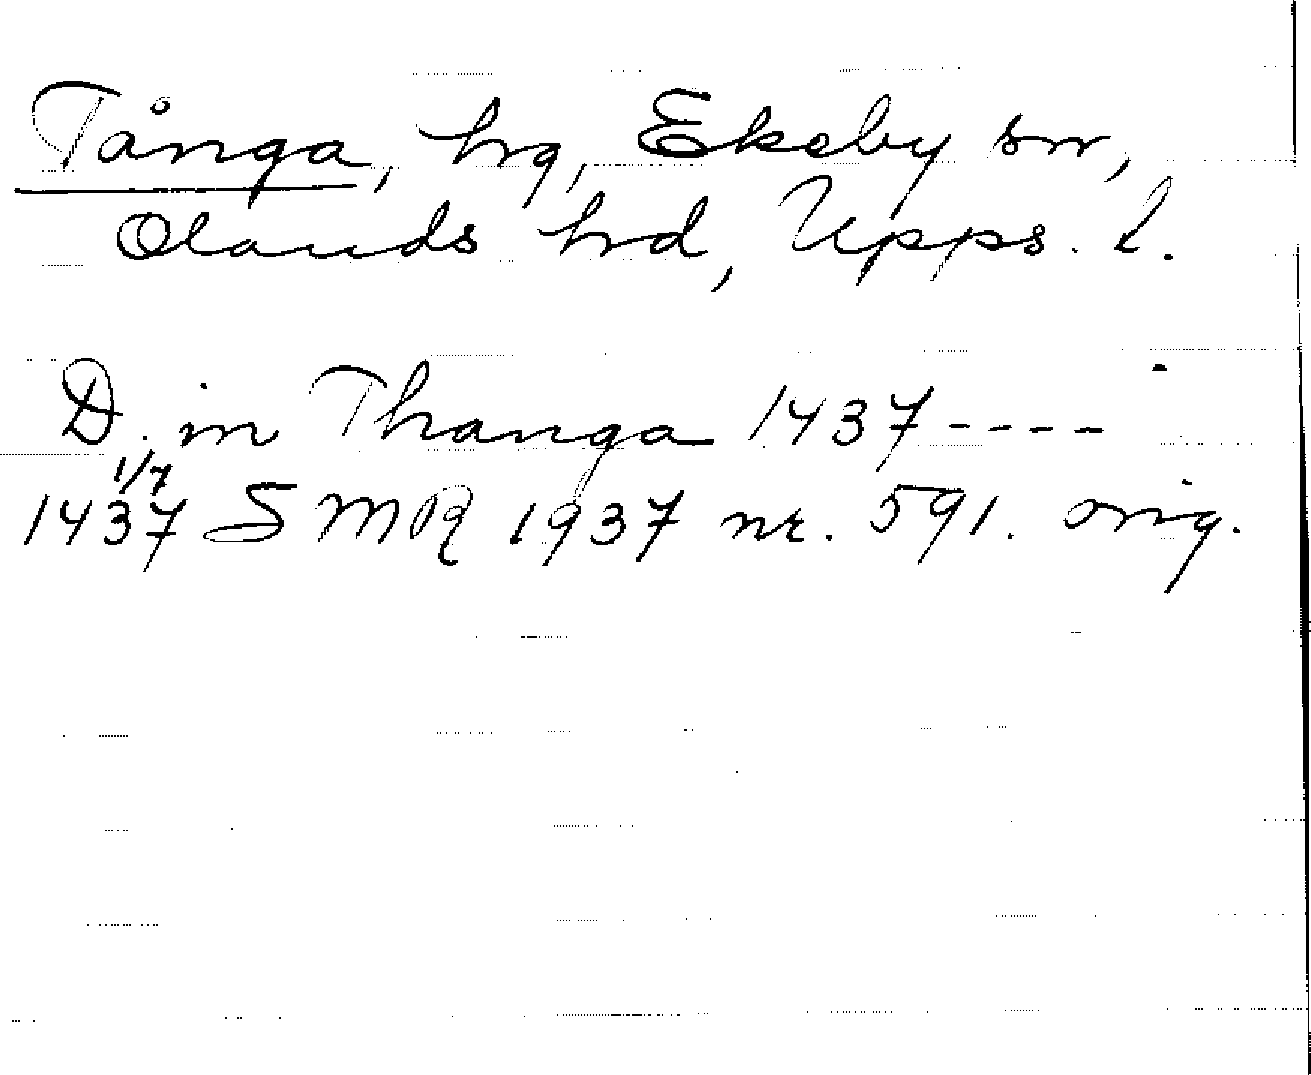 Tånga, hg, Ekeby sn,
Olands hd, Upps. l.
D. in Thanga 1437 ----
1437 1/7 SMR 1937 nr. 591. orig.